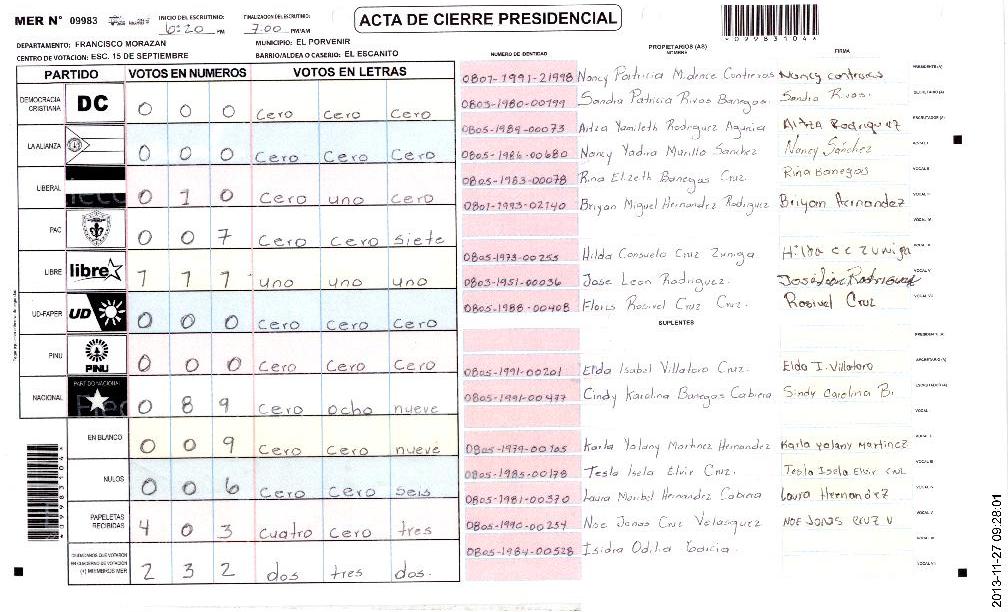 MER N° 09983
INICIO DEL ESCRUTINIO: 6:20 PM
FINALIZACION DEL ESCRUTINIO: 7:00 PM/AM
ACTA DE CIERRE PRESIDENCIAL
09983104
DEPARTAMENTO: FRANCISCO MORAZAN
MUNICIPIO: EL PORVENIR
CENTRO DE VOTACION: ESC. 15 DE SEPTIEMBRE
BARRIO/ALDEA O CASERIO: EL ESCANITO
PARTIDO VOTOS EN NUMEROS VOTOS EN LETRAS
DEMOCRACIA CRISTIANA DC 0 0 0 Cero Cero Cero
LA ALIANZA 0 0 0 Cero Cero Cero
LIBERAL 0 1 0 Cero uno Cero
PAC 0 0 7 Cero Cero siete
LIBRE libre 1 1 1 uno uno uno
UD-FAPER UD 0 0 0 Cero Cero Cero
PINU PINU 0 0 0 Cero Cero Cero
NACIONAL PARTIDO NACIONAL 0 8 9 Cero ocho nueve
EN BLANCO 0 0 9 Cero Cero nueve
NULOS 0 0 6 Cero Cero seis
PAPELETAS RECIBIDAS 4 0 3 cuatro Cero tres
CIUDADANOS QUE VOTARON EN CUADERNO DE VOTACION (+) MIEMBROS MER 2 3 2 dos tres dos.
09983104
NUMERO DE IDENTIDAD
PROPIETARIOS (AS)
NOMBRE
FIRMA
0801-1991-21998 Nancy Patricia Mdence Contreras Nancy contreras PRESIDENTE (A)
0803-1980-00199 Sandra Patricia Rivas Banegas. Sandra Rivas. SECRETARIO (A)
0805-1989-00073 Aitza Yamileth Rodriguez Agunia Aitza Rodriguez ESCRUTADOR (A)
0805-1986-00680 Nancy Yadira Murillo Sanchez Nancy Sánchez VOCAL I
0805-1983-00078 Rina Elizeth Banegas Cruz. Rina Banegas VOCAL II
0801-1993-02140 Briyan Miguel Hernandez Rodriguez Briyan Hernandez
0805-1973-00255 Hilda Consuelo Cruz Zuniga Hilda C C Zuniga
0803-1951-00036 Jose Leon Rodriguez. José León Rodriguez VOCAL V
0805-1988-00408 Flors Rosivel Cruz Cruz. Rosivel Cruz
SUPLENTES
PRESIDENTE (A)
0805-1991-00201 Elda Isabel Villatoro Cruz. Elda I. Villatoro SECRETARIO (A)
0805-1991-00477 Cindy Karolina Banegas Cabrera Sindy Carolina B. ESCRUTADOR (A)
VOCAL I
0805-1979-00105 Karla Yolany Martinez Hernandez Karla yolany Martinez
0805-1985-00178 Tesla Isela Elvir Cruz. Tesla Isela Elvir
0805-1981-00370 Laura Maribel Hernandez Cabrera Laura Hernandez
0805-1990-00254 Noe Jonas Cruz Velasquez NOE JONAS CRUZ V VOCAL V
0805-1984-00528 Isidra Odilia
2013-11-27 09:28:01